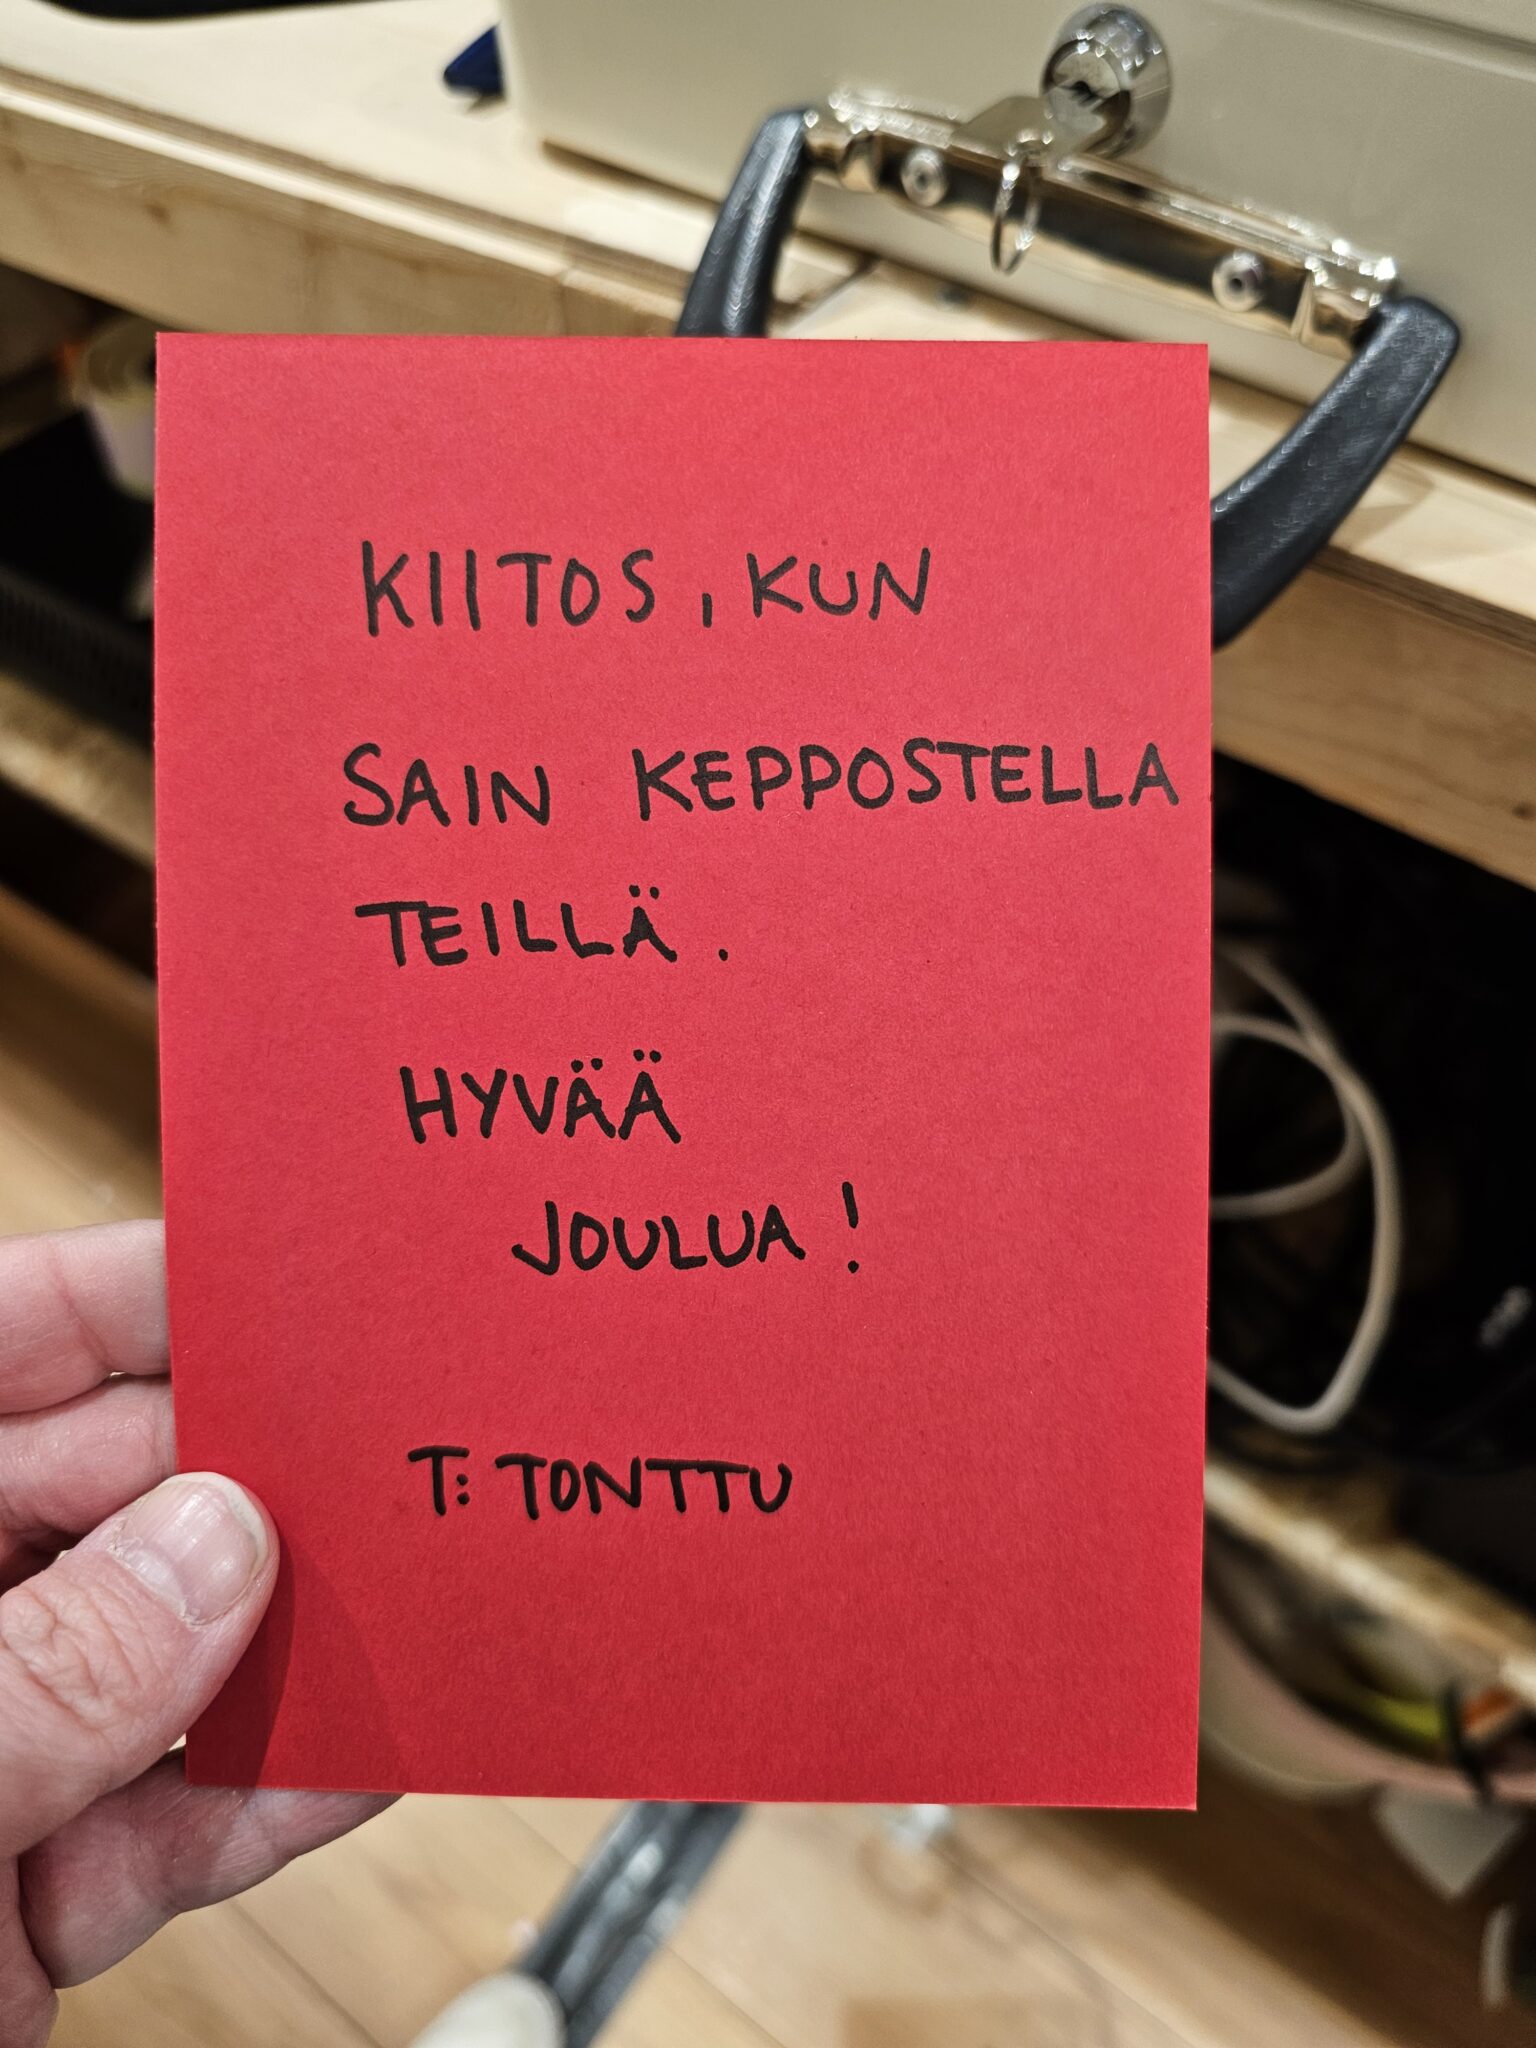 KIITOS, KUN
SAIN KEPPOSTELLA
TEILLÄ.
HYVÄÄ
JOULUA!
T: TONTTU